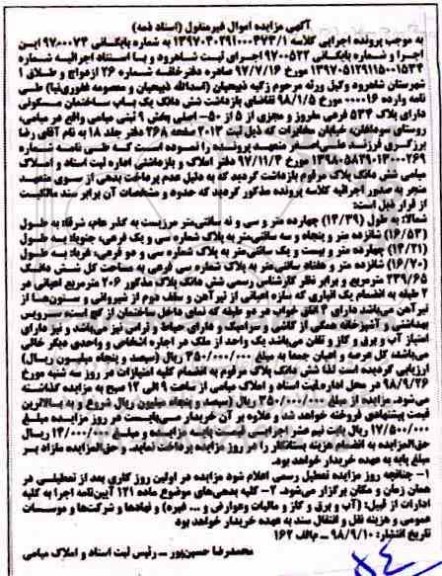 آگهی مزایده اموال غیرمنقول (اسناد ذمه)
به موجب پرونده اجرایی کلاسه 139704029100047۳/1 به شماره بایگانی 9700074 این
اجرا و شماره بایگانی 9700522 اجرای ثبت شاهرود و با استناد اجرائیه شماره
139705129115001534 مورخ 97/7/16 صادره دفترخانه شماره 26 ازدواج و طلاق 1
شهرستان شاهرود وکیل ورثه مرحوم زکیه ذبیحیان (اسدالله ذبیحیان و معصومه غفوری‌نیا) طی
نامه وارده 000016 مورخ 98/1/5 تقاضای بازداشت شش دانگ یک باب ساختمان مسکونی
دارای پلاک 534 فرعی مفروز و مجزی از 5 از 50- اصلی بخش 9 ثبتی میامی واقع در میامی،
روستای سوداغلن، خیابان مخابرات که ذیل ثبت 2013 صفحه 268 دفتر جلد 18 به نام آقای رضا
برزگری فرزند علی‌اصغر متعهد پرونده را نموده است که طی نامه شماره
139805829013000269 مورخ 97/11/4 دفتر املاک و بازداشتی اداره ثبت اسناد و املاک
میامی شش دانگ پلاک مرقوم بازداشت گردید که به دلیل عدم پرداخت بدهی از سوی متعهد
منجر به صدور اجرائیه کلاسه پرونده مذکور گردید که حدود و مشخصات آن برابر سند مالکیت
از قرار ذیل است:
شمالا: به طول (14/39) چهارده متر و سی و نه سانتی‌متر مرزیست به گذر عام، شرقا: به طول
(16/53) شانزده متر و پنجاه و سه سانتی‌متر به پلاک شماره سی و یک فرعی، جنوبا: به طول
(14/21) چهارده متر و بیست و یک سانتی‌متر به پلاک شماره سی و دو فرعی، غربا: به طول
(16/70) شانزده متر و هفتاد سانتی‌متر به پلاک شماره سی فرعی به مساحت کل شش دانگ
239/65 مترمربع و برابر نظر کارشناس رسمی شش دانگ پلاک مذکور 206 مترمربع اعیانی در
2 طبقه به انضمام یک انباری که سازه اعیانی از تیرآهن و سقف دوم از شیروانی و ستون‌ها از
تیرآهن می‌باشد دارای 4 اتاق خواب در دو طبقه که نمای داخل ساختمان از گچ است سرویس
بهداشتی و آشپزخانه همگی از کاشی و سرامیک و دارای حیاط و تراس نیز می‌باشد و نیز دارای
امتیاز آب و برق و گاز و تلفن می‌باشد یک واحد از ملک در اجاره اشخاص و واحدی دیگر خالی
می‌باشد کل عرصه و اعیان جمعا به مبلغ 350/000/000 ریال (سیصد و پنجاه میلیون ریال)
ارزیابی گردیده است لذا شش دانگ پلاک مرقوم به انضمام کلیه امتیازات در روز سه شنبه مورخ
98/9/26 در محل اداره ثبت اسناد و املاک میامی از ساعت 9 الی 12 صبح به مزایده گذاشته
می‌شود. مزایده از مبلغ 350/000/000 ریال (سیصد و پنجاه میلیون ریال شروع و به بالاترین
قیمت پیشنهادی فروخته خواهد شد و علاوه بر آن خریدار می‌بایست در روز مزایده مبلغ
17/500/000 ریال بابت نیم عشر اجرایی بابت مزایده و مبلغ 14/000/000 ریال
حق‌المزایده به انضمام هزینه بستانکار را در روز مزایده پرداخت نماید. و حق‌المزایده مازاد بر
مبلغ پایه به عهده خریدار خواهد بود.
1- چنانچه روز مزایده تعطیل رسمی اعلام شود مزایده در اولین روز کاری بعد از تعطیلی در
همان زمان و مکان برگزار می‌شود. 2- کلیه بدهی‌های موضوع ماده 121 آیین‌نامه اجرا به کلیه
ادارات از قبیل: (آب و برق و گاز و مالیات وعوارض و ... غیره) و نهادها و شرکت‌ها و موسسات
عمومی و هزینه نقل و انتقال سند به عهده خریدار خواهد بود
تاریخ انتشار: 98/9/10 ـ م‌الف 162
محمدرضا حسین‌پور ـ رئیس ثبت اسناد و املاک میامی